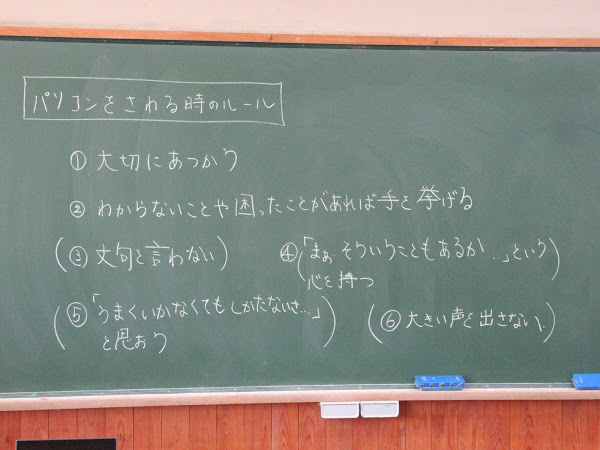 パソコンをさわる時のルール
① 大切にあつかう
② わからないことや困ったことがあれば手を挙げる
(③ 文句を言わない)
④(「まぁ、そういうこともあるか…」という
心を持つ)
(⑤「うまくいかなくてもしかたないさ…」
と思おう)
(⑥ 大きい声を出さない。)